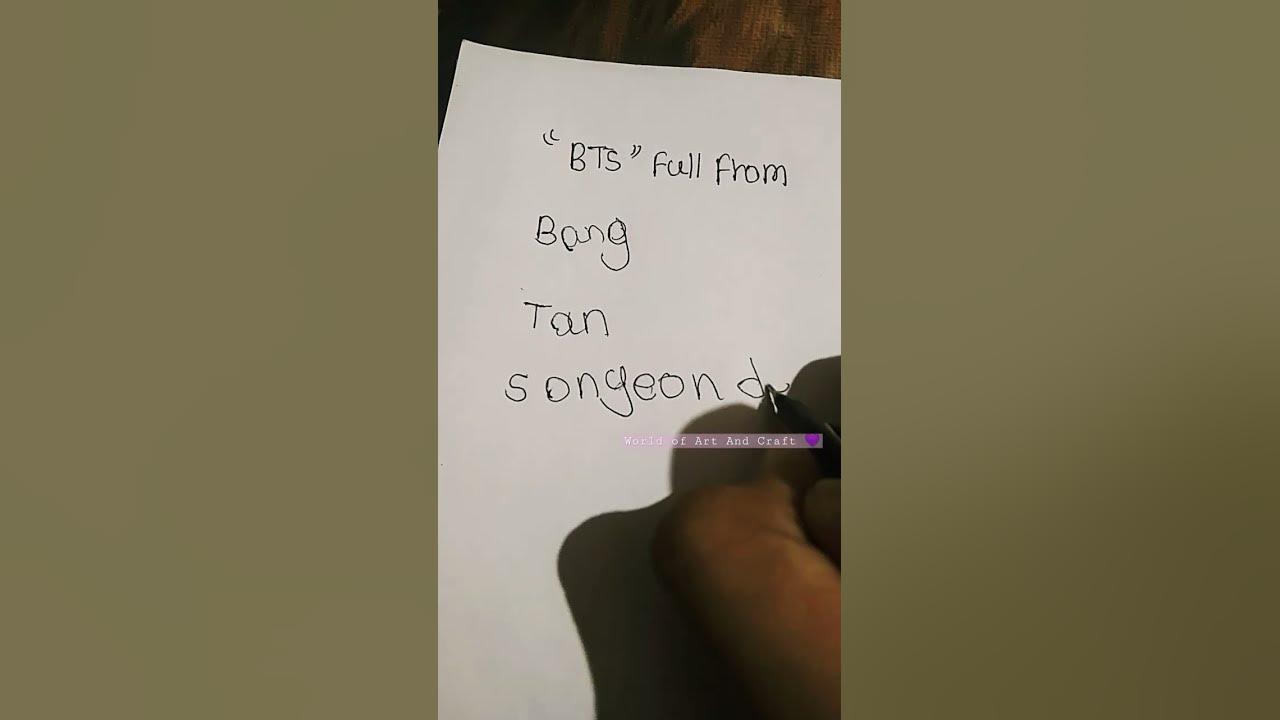 “BTS” Full From
Bang
Tan
songeon du
World of Art And Craft 💜